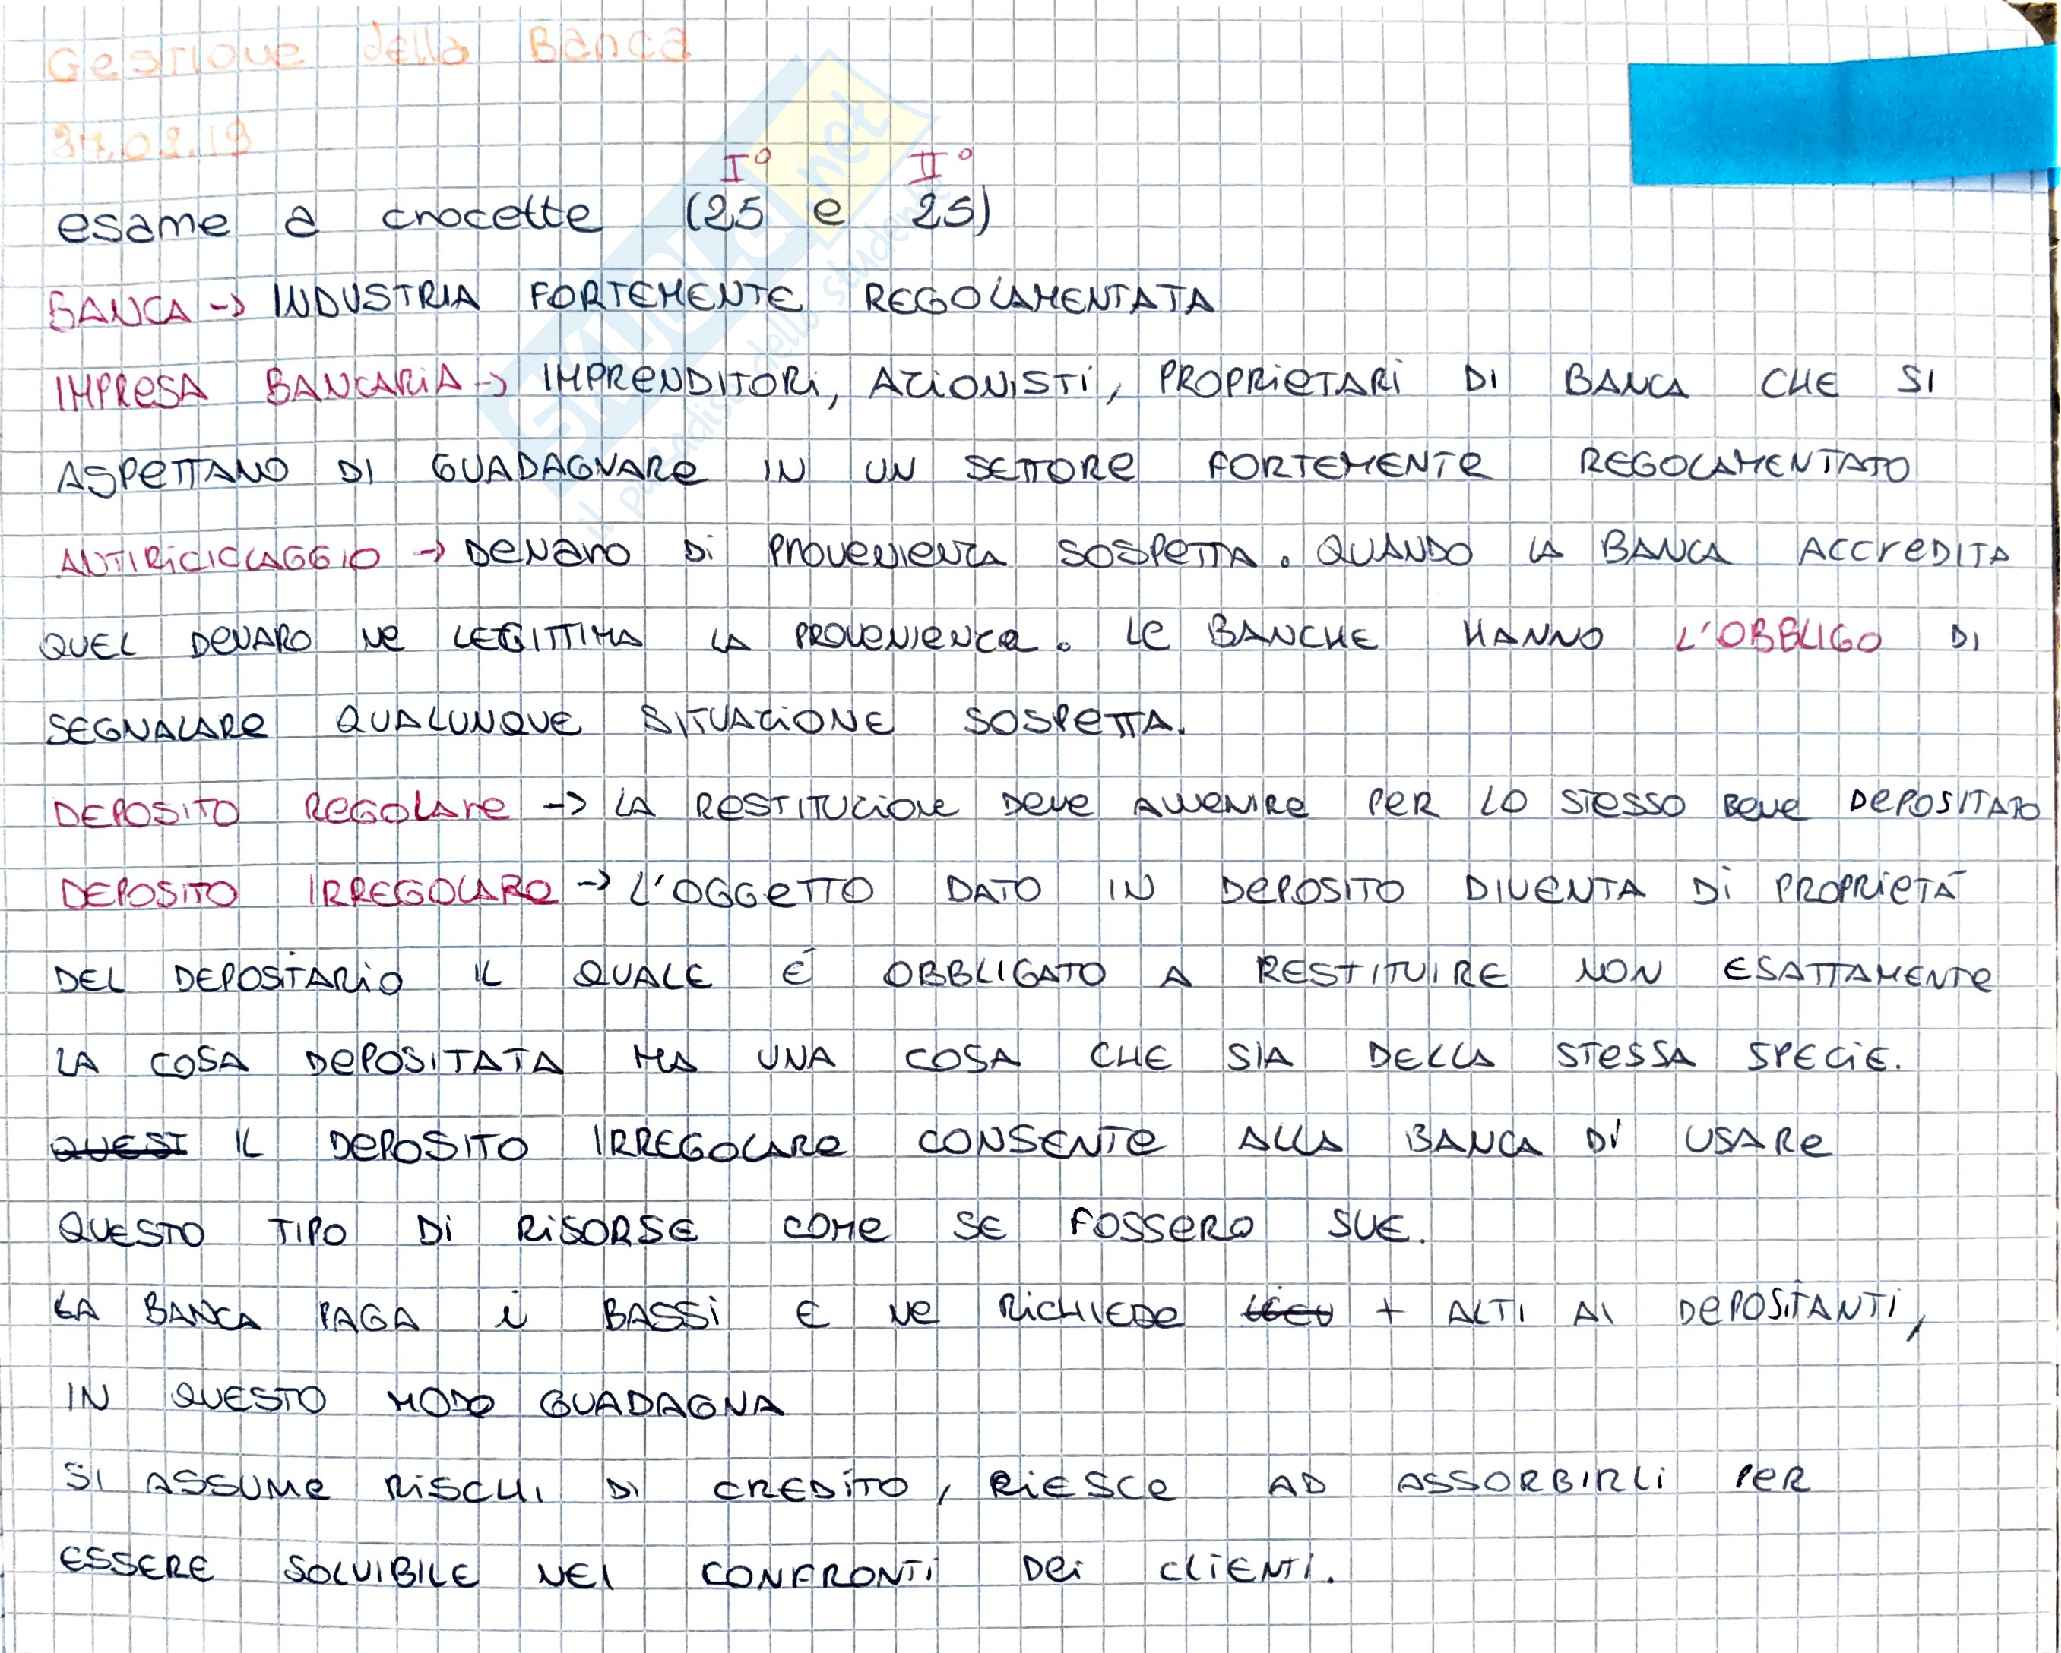 Gestione della Banca
27.02.19
I° II°
esame a crocette (25 e 25)
BANCA -> INDUSTRIA FORTEMENTE REGOLAMENTATA
IMPRESA BANCARIA -> IMPRENDITORI, AZIONISTI, PROPRIETARI DI BANCA CHE SI
ASPETTANO DI GUADAGNARE IN UN SETTORE FORTEMENTE REGOLAMENTATO
ANTIRICICLAGGIO -> DENARO DI PROVENIENZA SOSPETTA. QUANDO LA BANCA ACCREDITA
QUEL DENARO NE LEGITTIMA LA PROVENIENZA. LE BANCHE HANNO L'OBBLIGO DI
SEGNALARE QUALUNQUE SITUAZIONE SOSPETTA.
DEPOSITO REGOLARE -> LA RESTITUZIONE DEVE AVVENIRE PER LO STESSO BENE DEPOSITATO
DEPOSITO IRREGOLARE -> L'OGGETTO DATO IN DEPOSITO DIVENTA DI PROPRIETÀ
DEL DEPOSITARIO IL QUALE É OBBLIGATO A RESTITUIRE NON ESATTAMENTE
LA COSA DEPOSITATA MA UNA COSA CHE SIA DELLA STESSA SPECIE.
QUEST IL DEPOSITO IRREGOLARE CONSENTE ALLA BANCA DI USARE
QUESTO TIPO DI RISORSE COME SE FOSSERO SUE.
LA BANCA PAGA i BASSI E NE RICHIEDE + ALTI AI DEPOSITANTI,
IN QUESTO MODO GUADAGNA
SI ASSUME RISCHI DI CREDITO, RIESCE AD ASSORBIRLI PER
ESSERE SOLVIBILE NEI CONFRONTI DEI CLIENTI.
SKUOLA.net
il paradiso dello studente